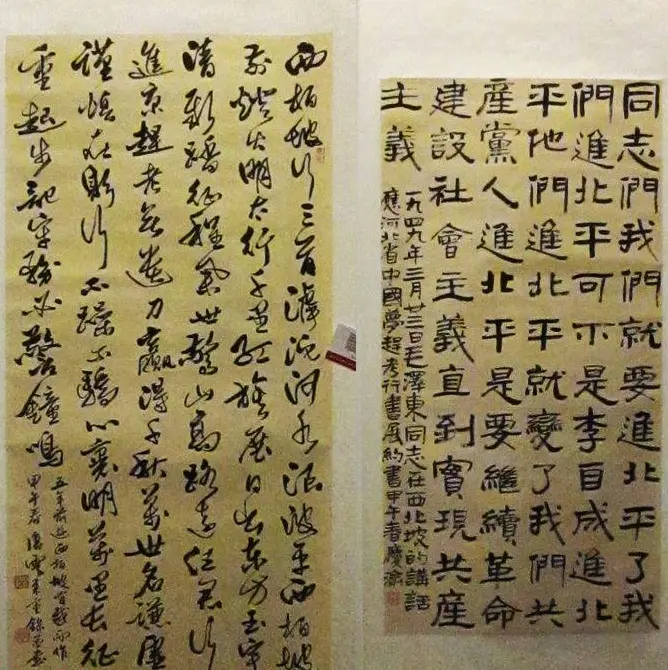 同志們我們就要進北平了我
們進北平可不是李自成進北
平他們進北平就變了我們共
產黨人進北平是要繼續革命
建設社會主義直到實現共產
主義
一九四九年三月廿三日毛澤東同志在西北坡的講話
應河北省中國夢趕考行書展約書甲午春慶
西柏坡行三首滹沱河水浪波平西柏坡
前燈火明太行千里紅旗展日出東方玉宇
清新踏征程舉世驚山高路遠任君行
進京趕考無遺力贏得千秋萬世名謙虛
謹慎在躬行不躁不驕心裏明萬里長征
重起步記牢務必警鐘鳴
五年前遊西柏坡有感而作
甲午春